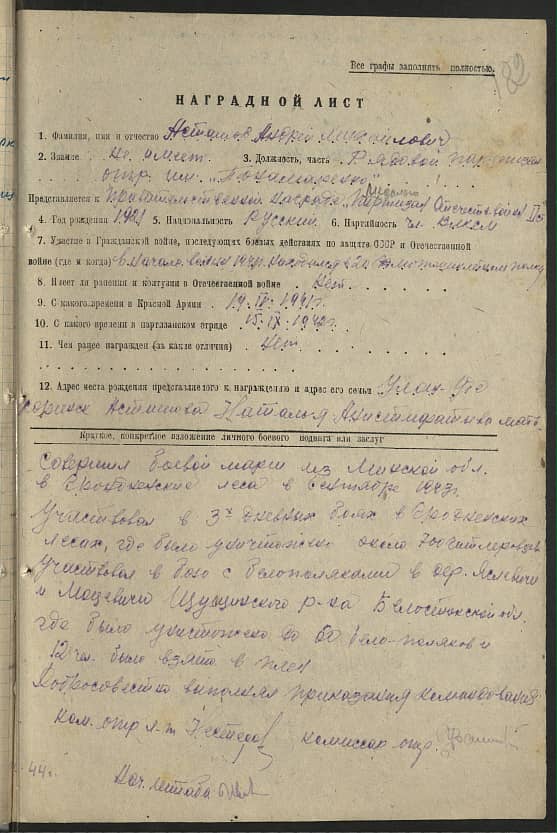 Все графы заполнять полностью.
182
НАГРАДНОЙ ЛИСТ
1. Фамилия, имя и отчество Асташов Андрей Михайлович
2. Звание не имеет. 3. Должность, часть Рядовой партизан
отр. им. "Понамаренко"
Представляется к Правительственной награде медалью "Партизан Отечеств. войны" II ст
4. Год рождения 1921 5. Национальность Русский 6. Партийность чл. ВЛКСМ
7. Участие в Гражданской войне, последующих боевых действиях по защите СССР и Отечественной
войне (где и когда) в начале войны 1941г.
8. Имеет ли ранения и контузии в Отечественной войне Нет.
9. С какого времени в Красной Армии 1941г.
10. С какого времени в партизанском отряде 15.IX.1942г.
11. Чем ранее награжден (за какие отличия) Нет
12. Адрес места рождения представляемого к награждению и адрес его семьи Улан-Удэ
Асташова Наталья мать.
Краткое, конкретное изложение личного боевого подвига или заслуг
Совершил боевой марш из Минской обл.
в Гродненские леса в сентябре 1943г.
Участвовал в 3х дневных боях в Гродненских
лесах, где было уничтожено около 700 гитлеровцев
Участвовал в бою с белополяками в дер. Яслевичи
и Моцевичи Щучинского р-на Белостокской обл.
где было уничтожено до 60 бело-поляков и
12 чел. было взято в плен
Добросовестно выполнял приказания командования
Ком. отр л-т Нестеров комиссар отр.
44г.
Нач. штаба